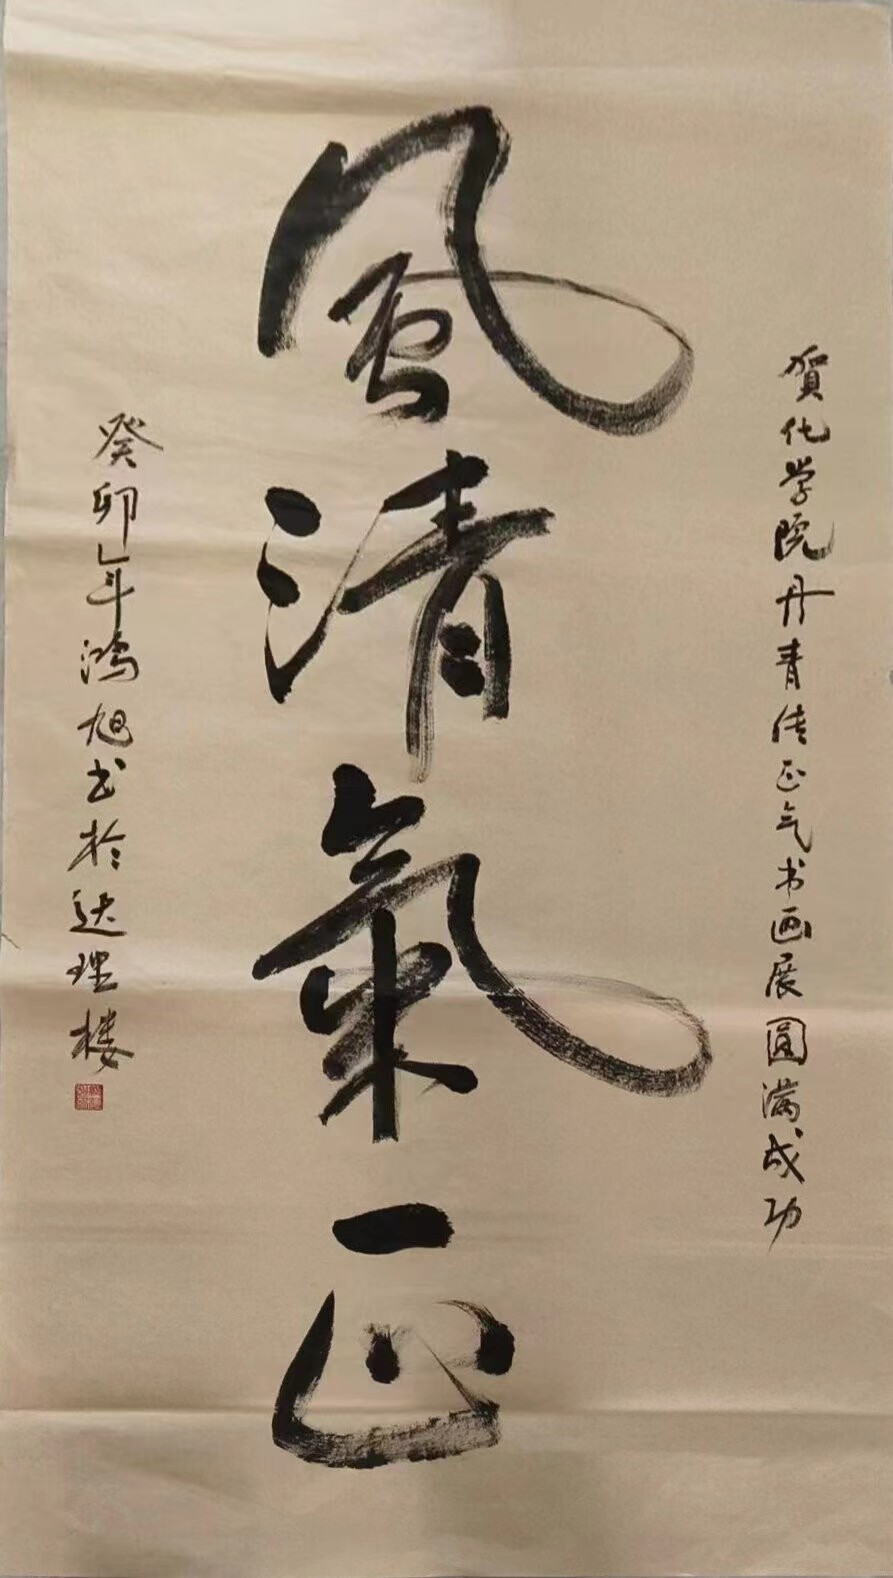 賀化学院丹青传正气书画展圆满成功
風清氣正
癸卯年鸿旭书於达理楼